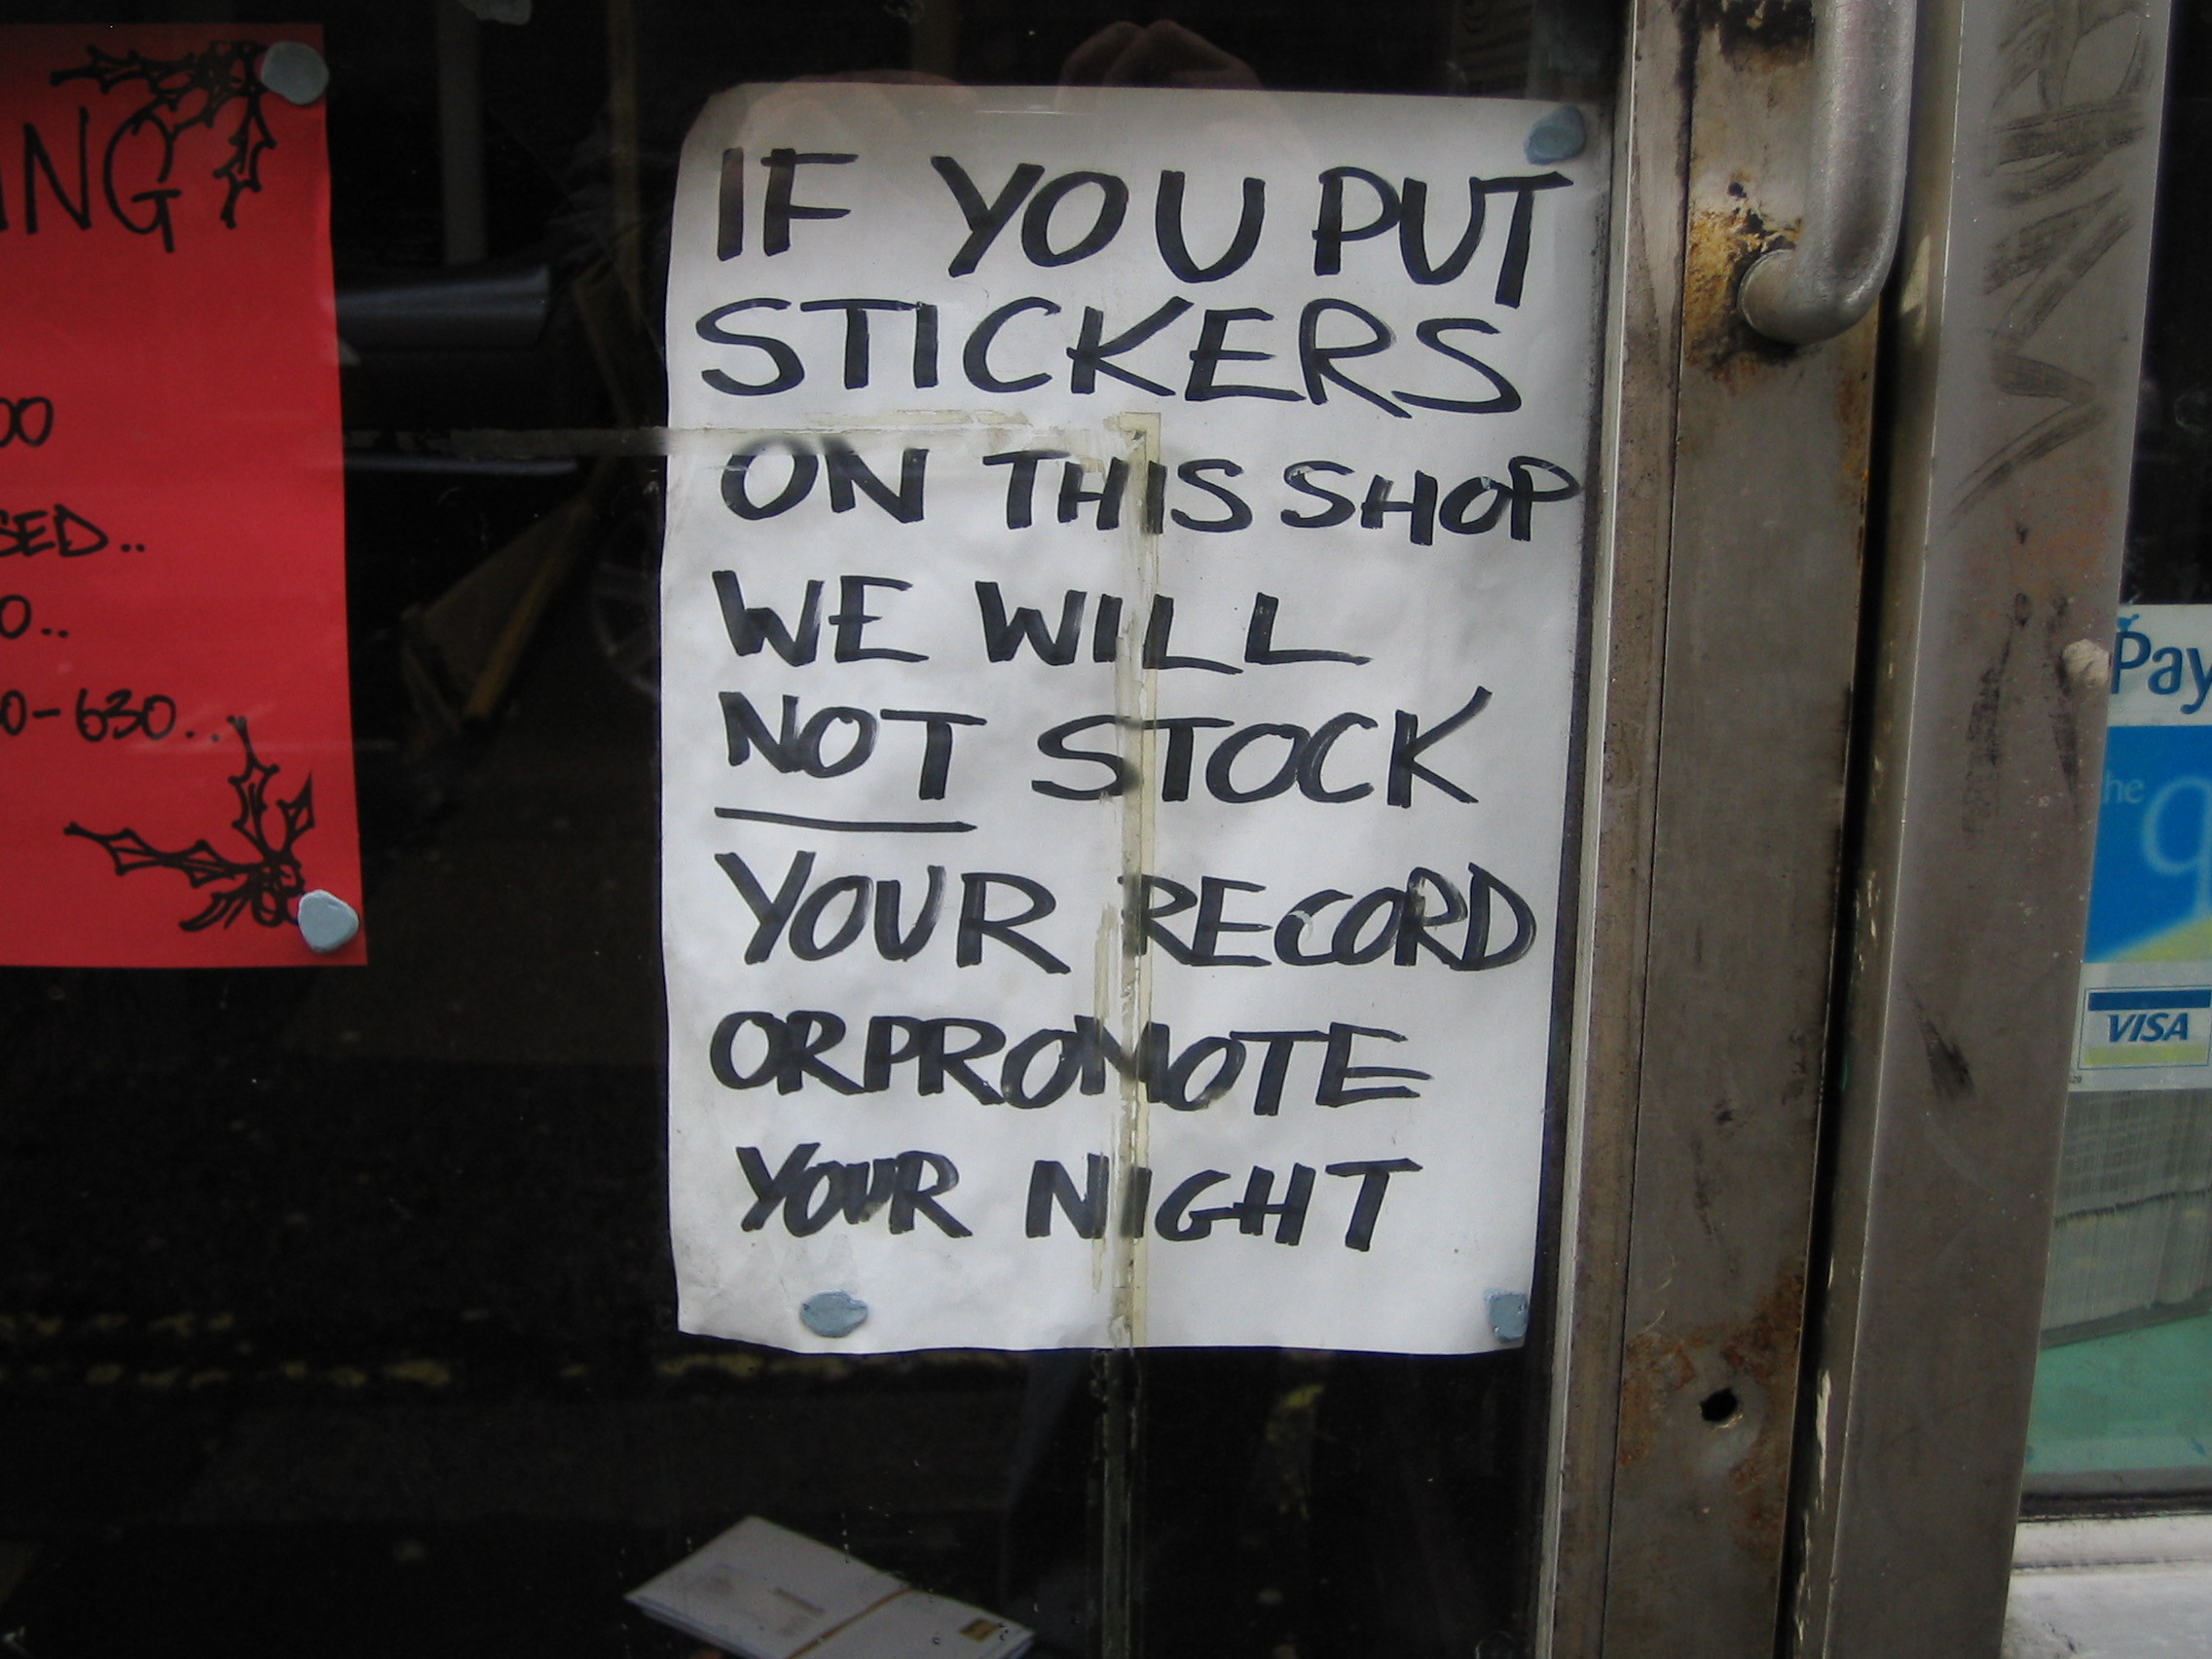 ING
00
SED..
0..
0-630..
IF YOU PUT
STICKERS
ON THIS SHOP
WE WILL
NOT STOCK
YOUR RECORD
OR PROMOTE
YOUR NIGHT
Pay
the
VISA